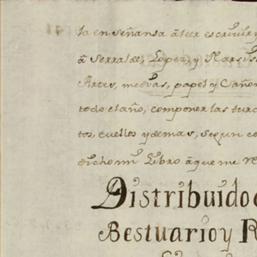 la enseñansa à leer escriuir y
à Serralde, Lopez, y Narciso
Artes, medias, papel y Cañon
todo el año, componer las turc
tos, cuellos y demas, segun co
dicho mi Libro àque me re
Distribuido
Bestuario y R